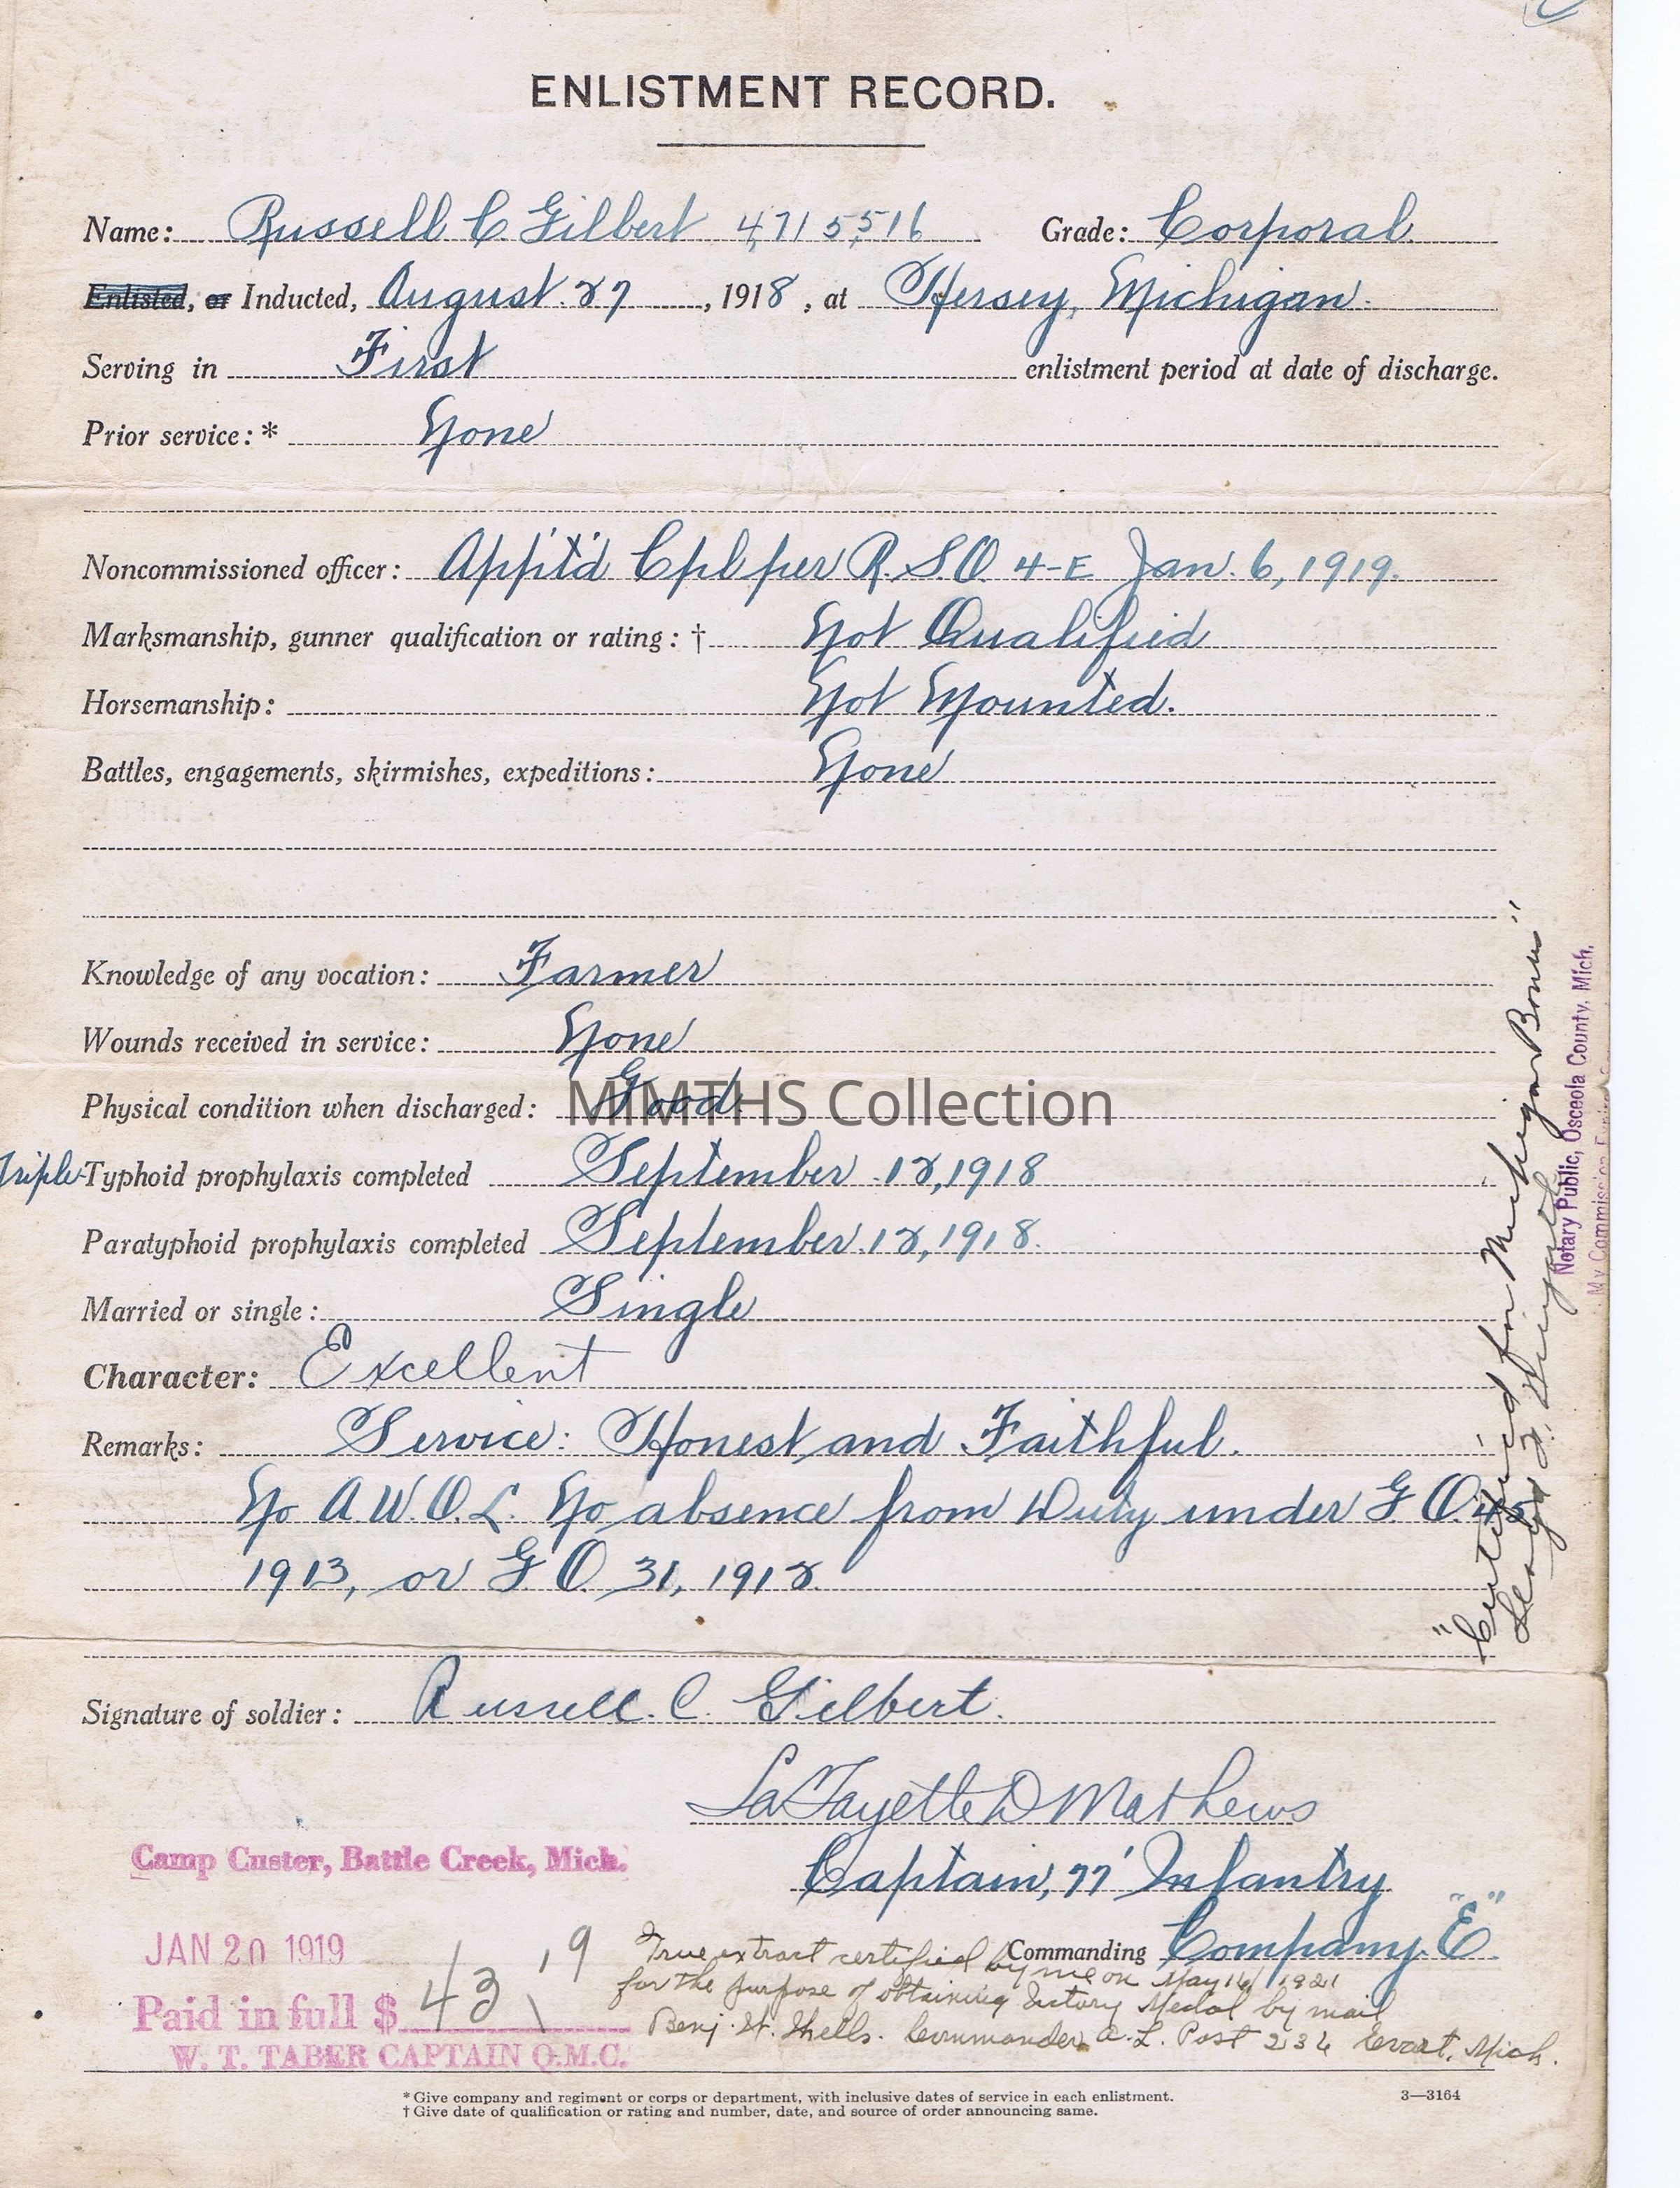 ENLISTMENT RECORD.
Name: Russell C Gilbert 4,715,516 Grade: Corporal
Enlisted, or Inducted, August 27, 1918, at Hersey, Michigan.
Serving in First enlistment period at date of discharge.
Prior service:* None
Noncommissioned officer: App't'd Cpl per R.S.O. 4-E Jan. 6, 1919.
Marksmanship, gunner qualification or rating: † Not Qualified
Horsemanship: Not Mounted.
Battles, engagements, skirmishes, expeditions: None
Knowledge of any vocation: Farmer
Wounds received in service: None
Physical condition when discharged: Good.
MIMTHS Collection
Triple Typhoid prophylaxis completed September 12, 1918
Paratyphoid prophylaxis completed September 12, 1918.
Married or single: Single
Character: Excellent
Remarks: Service: Honest and Faithful.
No A.W.O.L. No absence from Duty under G.O. 45
1913, or G.O. 31, 1912.
Signature of soldier: Russell. C. Gilbert.
LaFayette D Mathews
Captain, 77' Infantry
Commanding Company. "E"
Camp Custer, Battle Creek, Mich.
JAN 20 1919
Paid in full $ 43.19
W. T. TABER CAPTAIN Q.M.C.
True extract certified by me on May 16/1921
for the purpose of obtaining Victory Medal by mail
Benj. H. Shells. Commander A.L. Post 236 Evart, Mich.
"Certified for Michigan Bonus"
Notary Public, Osceola County, Mich.
My Commission Expires
* Give company and regiment or corps or department, with inclusive dates of service in each enlistment.
† Give date of qualification or rating and number, date, and source of order announcing same.
3—3164